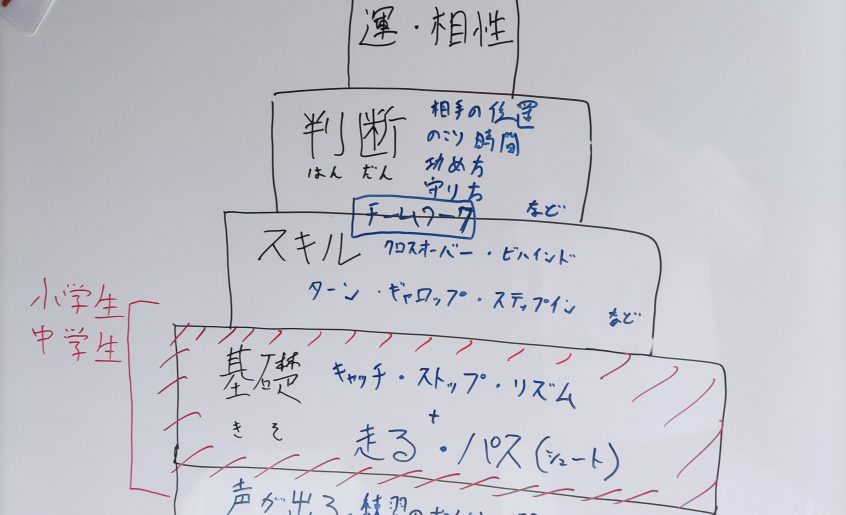 運・相性
判断
はん だん
相手の位置
のこり時間
攻め方
守り方
など
チームワーク
スキル
クロスオーバー・ビハインド
ターン・ギャロップ・ステップイン
など
小学生
中学生
基礎
きそ
キャッチ・ストップ・リズム
+
走る・パス(シュート)
声が出る、練習の